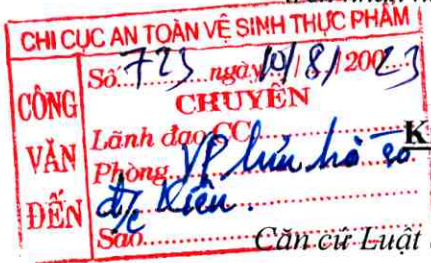 CHI CỤC AN TOÀN VỆ SINH THỰC PHẨM
CÔNG VĂN ĐẾN
Số: 723 ngày 10/8/20023
CHUYỂN
Lãnh đạo CC
K
Phòng VP lưu hồ sơ
đ/c Kiên.
Sao
Căn cứ Luật